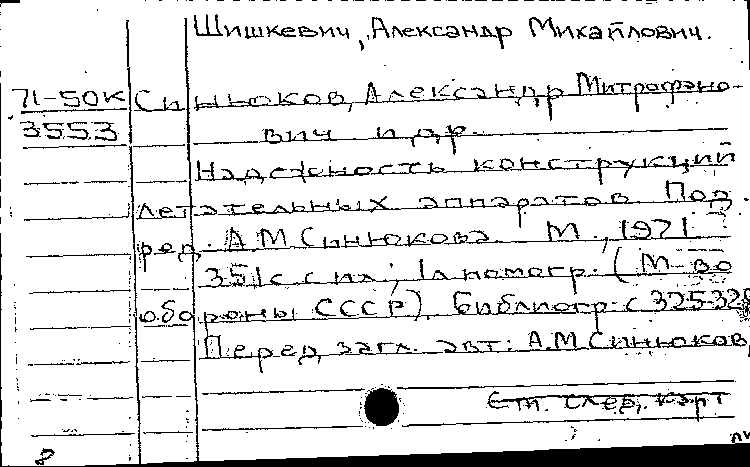 Шишкевич, Александр Михайлович.
71-50к Синюков, Александр Митрофано-
3553 вич и др.
Надежность конструкций
летательных аппаратов. Под
ред. А.М. Синюкова. М., 1971
351 с с ил; 1 л номогр. (М-во
обороны СССР). Библиогр: с 325-328
Перед загл. авт: А.М. Синюков,
См. след. карт
8